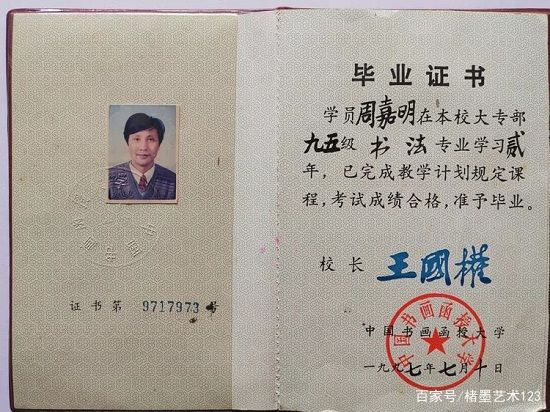 证书第 9717973 号
毕业证书
学员周嘉明在本校大专部
九五级 书法 专业学习贰
年，已完成教学计划规定课
程，考试成绩合格，准予毕业。
校长 王國權
中国书画函授大学
中国书画函授大学
一九九七年七月十日
百家号/楮墨艺术123